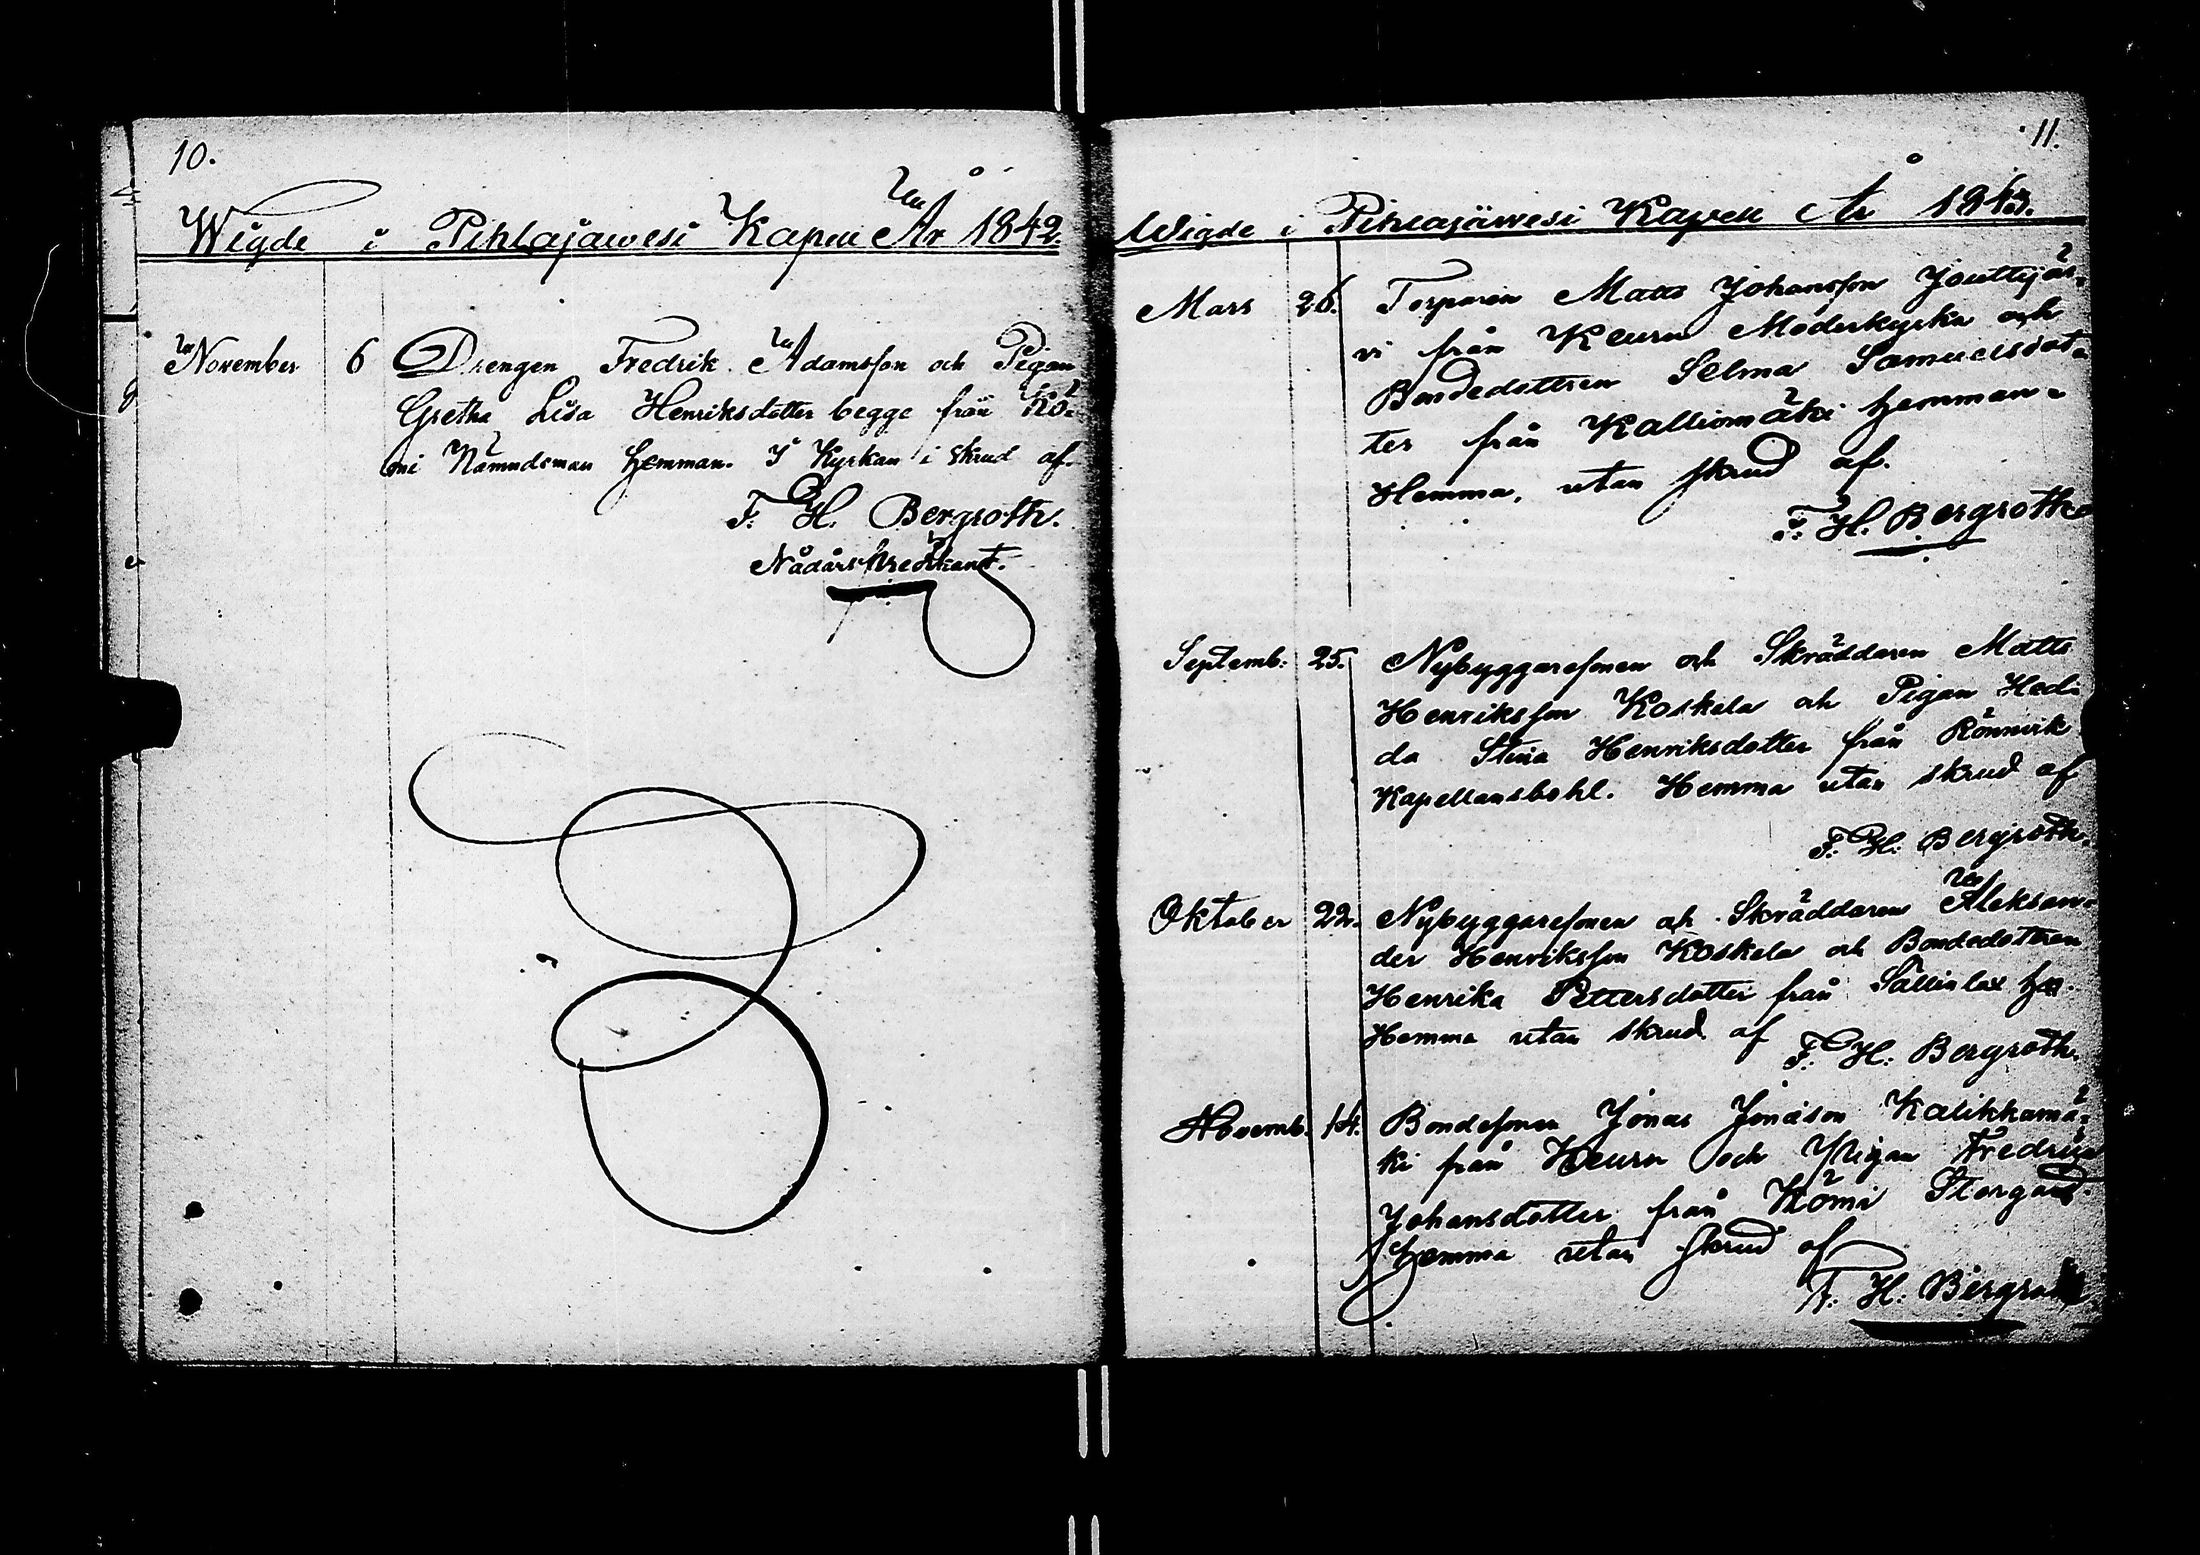 10.
Wigde i Pihlajawesi Kapell År 1842.
November 6 Drengen Fredrik Adamsson och Pigan
Gretha Lisa Henriksdotter begge från Kö-
mi Nämndeman hemman. I Kyrkan i skrud af
F. H. Bergroth.
Nådårs Predikant.
11.
Wigde i Pihlajäwesi Kapell År 1843.
Mars 26. Torparen Matts Johansson Jouttijär-
vi från Keuru Moderkyrka och
Bondedottren Selma Samuelsdot-
ter från Kalliomäki hemman-
Hemma, utan skrud af.
F. H. Bergroth
Septemb: 25. Nybyggaresonen och Skräddaren Matts
Henriksson Koskela och Pigan Hed-
da Stina Henriksdotter från Rönnvik
Kapellansbohl. Hemma utan skrud af
F. H. Bergroth.
Oktober 22. Nybyggaresonen och Skräddaren Aleksan-
der Henriksson Koskela och Bondedottren
Henrika Pettersdotter från
Hemma utan skrud af
F. H. Bergroth.
Novemb. 14. Bondesonen Jonas Jonasson Kalikkamä-
ki från Keuru och Pigan Fredrika
Johansdotter från Kömi Storgård.
Hemma utan skrud af
F. H. Bergroth